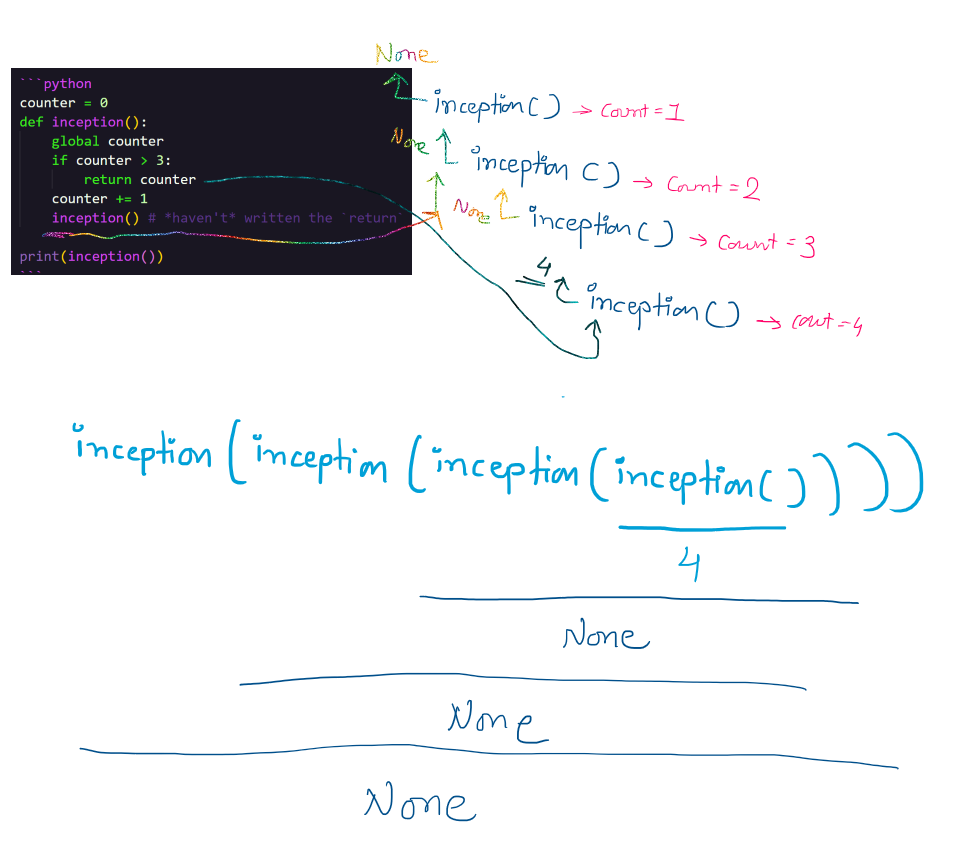 None
```python
counter = 0
def inception():
    global counter
    if counter > 3:
        return counter
    counter += 1
    inception() # *haven't* written the `return`
print(inception())
```
inception() → Count = 1
None
inception () → Count = 2
None
inception() → Count = 3
4
inception() → cout = 4
inception(inception(inception(inception()))))
4
None
None
None